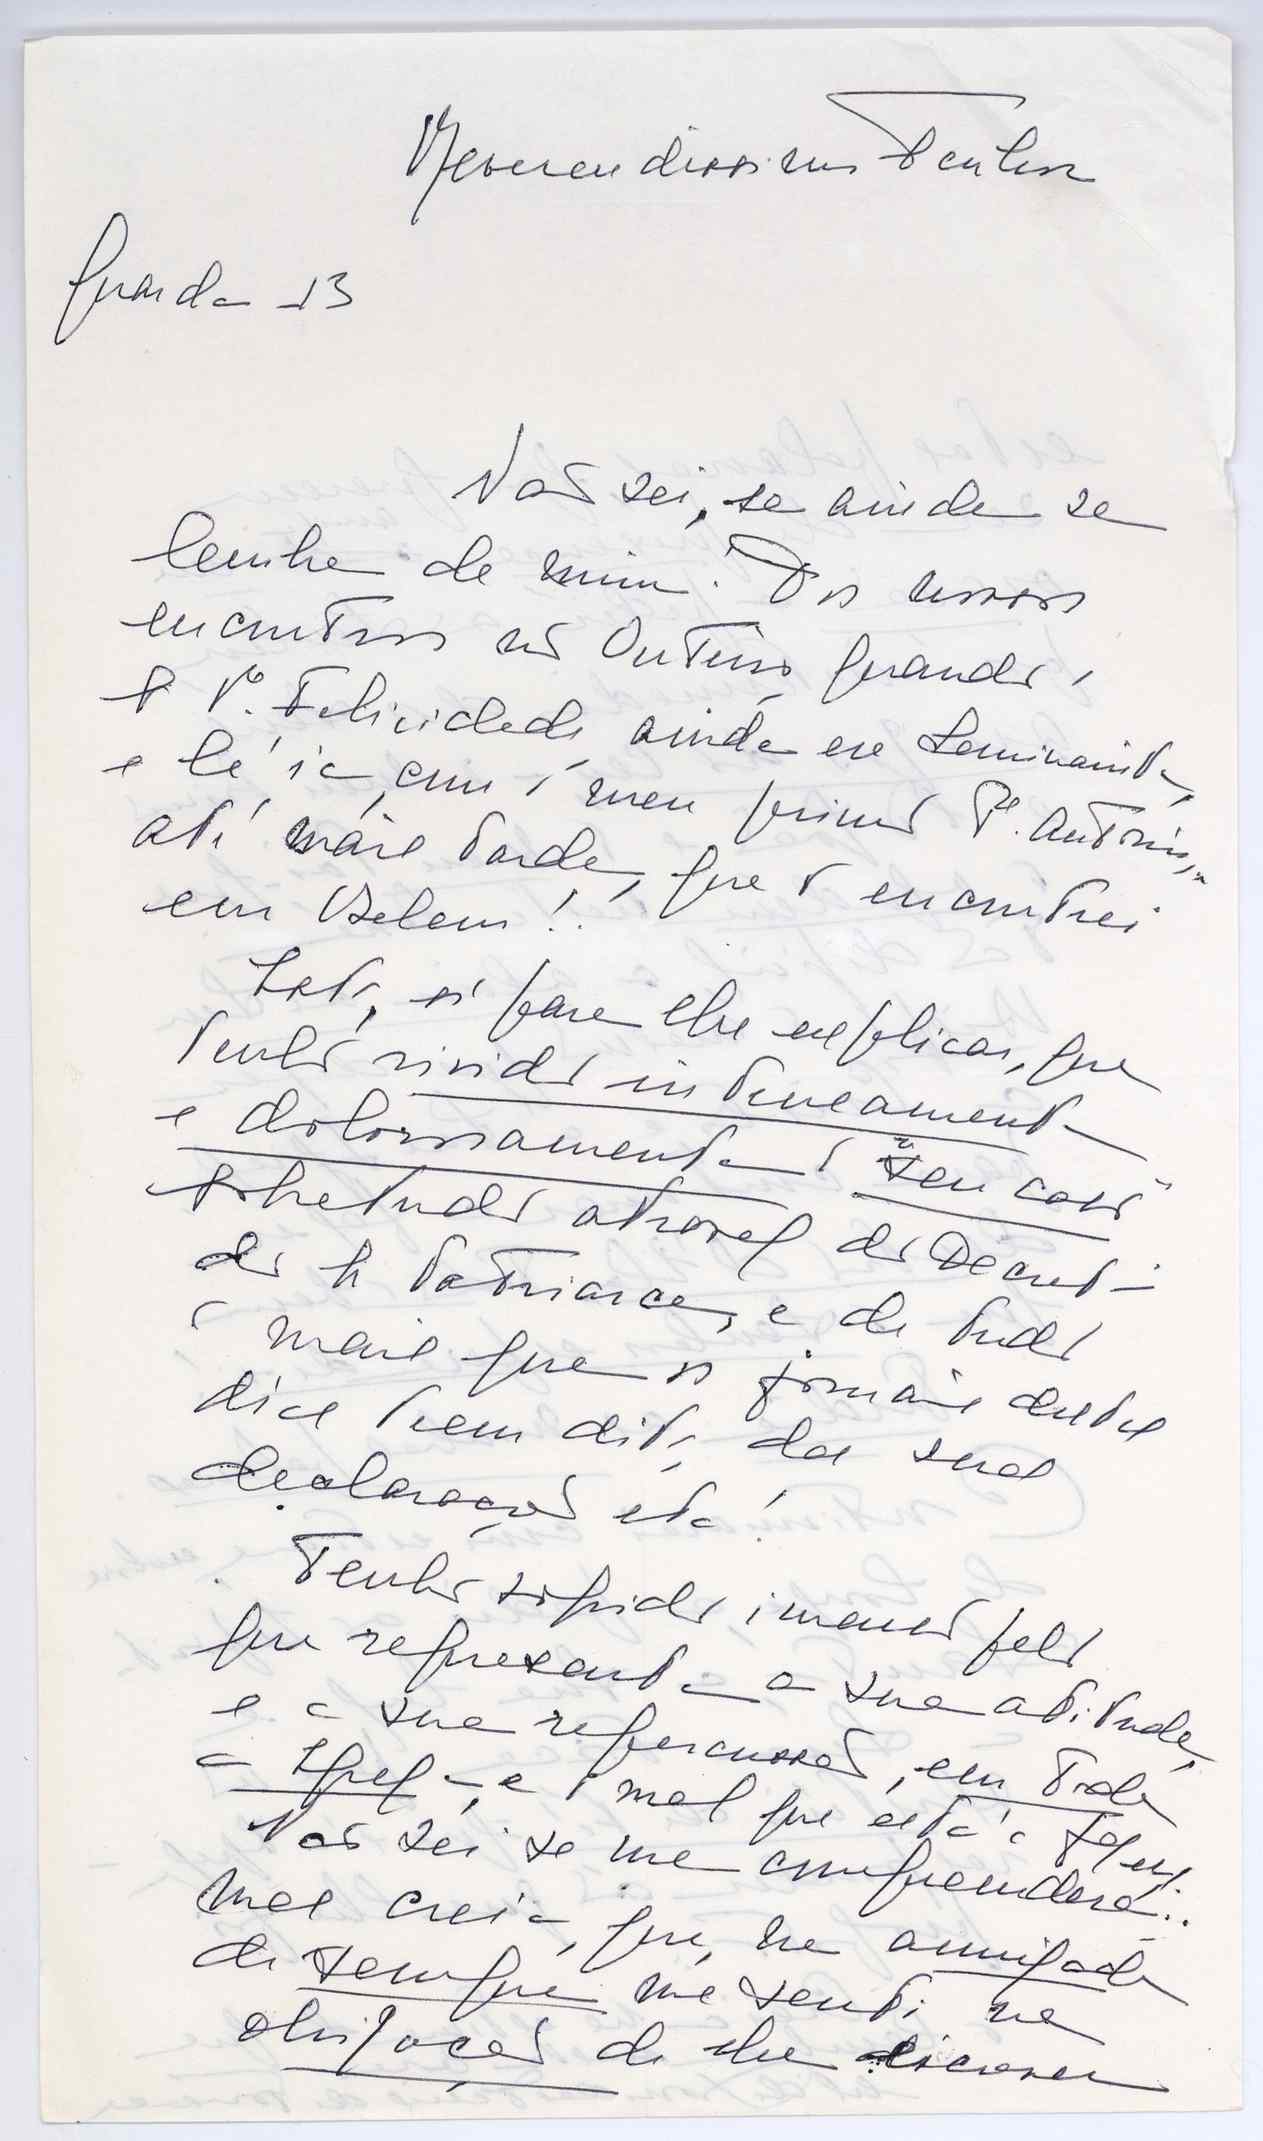 Reverendissimo Senhor
Guarda 13
Não sei, se ainda se
lembra de mim. Dos nossos
encontros no Outeiro, quando o
P. Felicidade, ainda era Seminarista,
e lá ia, com o meu primo P.e António,
até mais tarde, que o encontrei
em Belem!.
Isto, é para lhe explicar, que
tenho vivido intensamente
e dolorosamente o "seu caso"
sobretudo através do Decreto
do Sr Patriarca, e de tudo
o mais que os jornais destes
dias teem dito, das suas
declarações etc!
Tenho sofrido imenso pelo
que representa a sua atitude,
e a sua repercussão, em toda
a Igreja, e o mal que está a fazer.
Não sei se me compreenderá..
mas creia, que, na amizade
de sempre me senti na
obrigação de lhe escrever